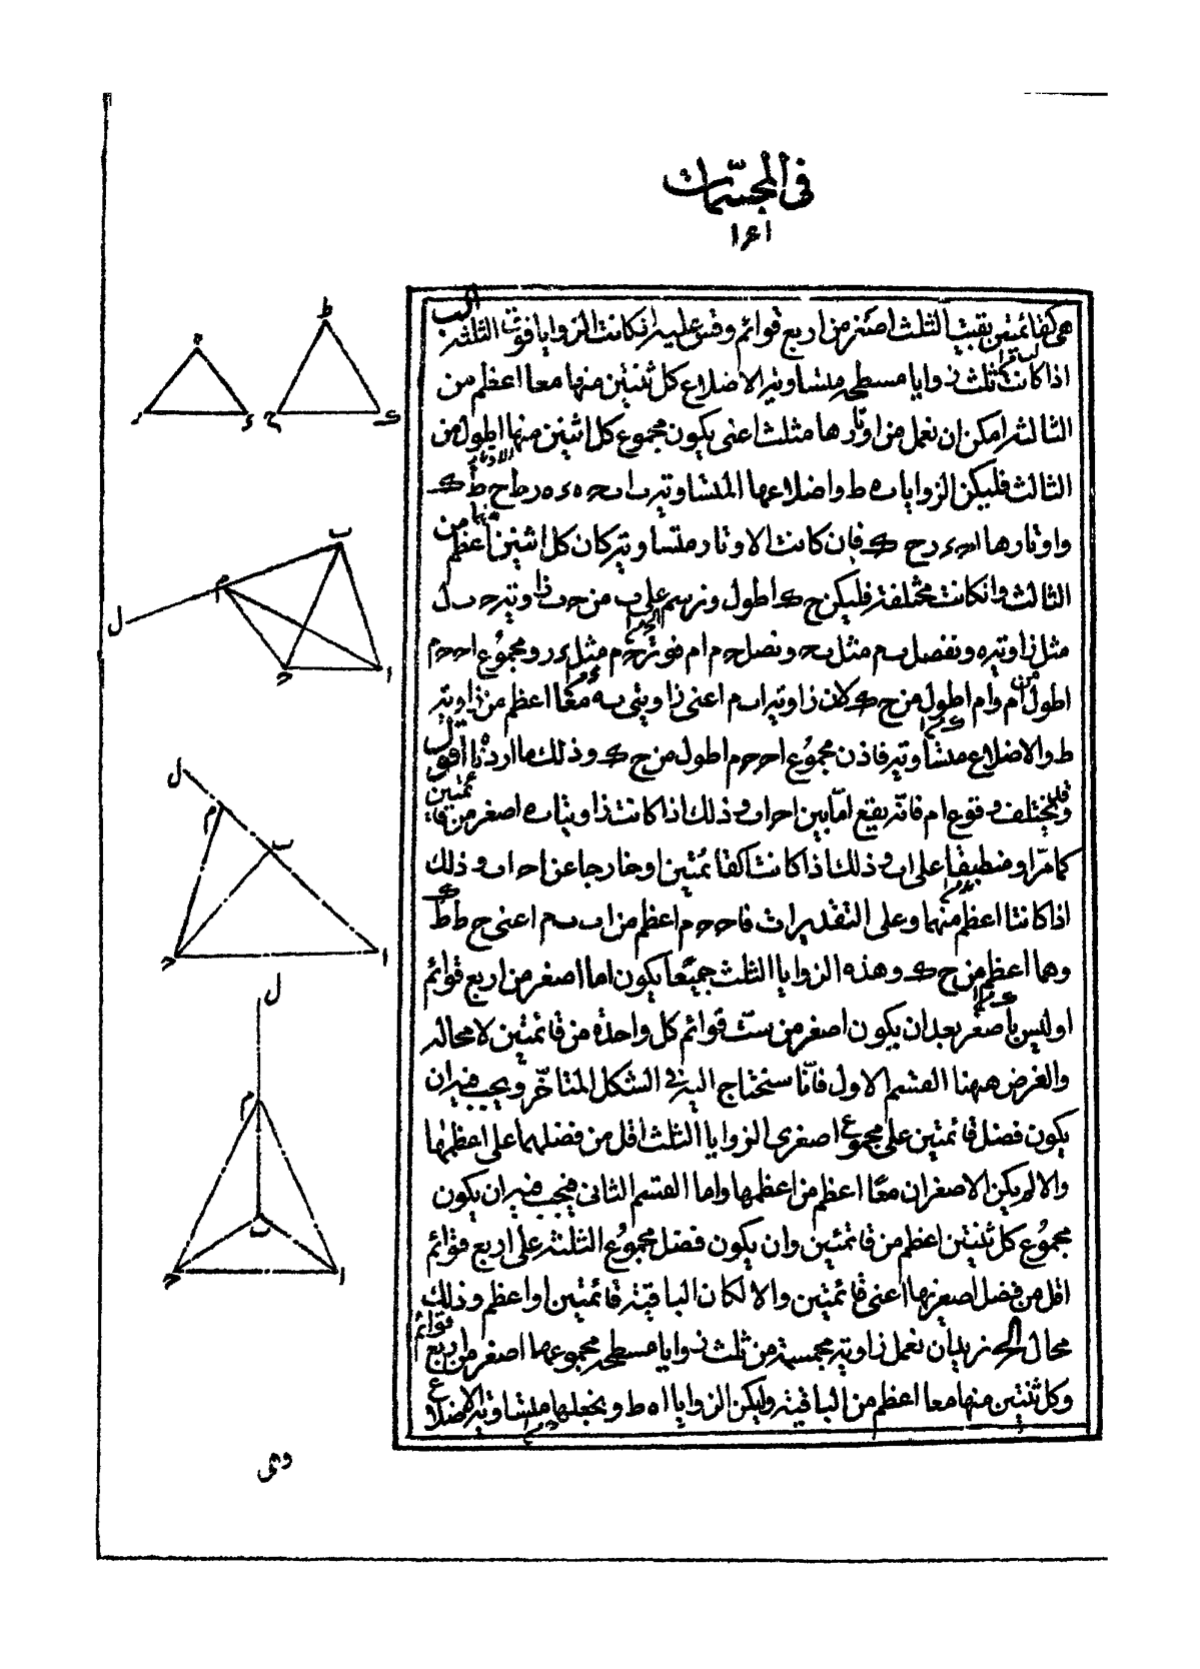 فى المجسّمات
١٤١
هى كقائمتين بقيت الثلث اصغر من اربع قوائم وقس عليه ان كانت الزوايا فوق الثلثة
كب
اذا كانت ثلث زوايا مسطحة متساوية الاضلاع كل ثنتين منها معا اعظم من
الثالثة امكن ان نعمل من اوتارها مثلث اعنى يكون مجموع كل اثنين منها اطول من
الاوتار
الثالث فليكن الزوايا ب ه ط واضلاعها المتساوية ب ا ب ح ه ء ه ر ط ح ط ك
واوتارها ا ح ء ر ح ك فان كانت الاوتار متساوية كان كل اثنين منها اعظم من
الثالث وان كانت مختلفة فليكن ح ك اطول ونرسم على ب من ح ب زاوية ح ب ل
مثل زاوية ه ونفصل ب م مثل ب ح ونصل ح م ا م فوتر ح م مثل ء ر ومجموع ا ح ح م
اطول من ا م و ا م اطول من ح ك لان زاوية ا ب م اعنى زاويتى ب ه معا اعظم من زاوية
ط والاضلاع متساوية فاذن مجموع ا ح ح م اطول من ح ك وذلك ما اردناه اقول
وقد يختلف وقوع ا م فانه يقع امّا بين ا ح ا ب وذلك اذا كانت زاويتا ب ه اصغر من قائمتين
كما مرّ او منطبقا على ا ب وذلك اذا كانتا كقائمتين او خارجا عن ا ح ا ب وذلك
اذا كانتا اعظم منهما وعلى التقديرات فا ح ح م اعظم من ا ب ب م اعنى ح ط ط ك
وهما اعظم من ح ك وهذه الزوايا الثلث جميعا يكون اما اصغر من اربع قوائم
او ليس باصغر بعد ان يكون اصغر من ست قوائم كل واحدة من قائمتين لا محالة
والغرض ههنا القسم الاول فانّا سنحتاج اليه فى الشكل المتاخّر ويجب فيه ان
يكون فضل قائمتين على مجموع اصغرى الزوايا الثلث اقل من فضلهما على اعظمها
والا لم يكن الاصغران معًا اعظم من اعظمها واما القسم الثانى فيجب فيه ان يكون
مجموع كل ثنتين اعظم من قائمتين وان يكون فضل مجموع الثلثة على اربع قوائم
اقل من فضل اصغريها اعنى قائمتين والا لكان الباقية قائمتين او اعظم وذلك
محال كج نريد ان نعمل زاوية مجسمة من ثلث زوايا مسطحة مجموعها اصغر من اربع قوائم
وكل ثنتين منها معا اعظم من الباقية وليكن الزوايا ا ه ط ونجعلها متساوية الاضلاع
وهى
ه
ر
ء
ط
ح
ك
ب
م
ل
ح
ا
ل
م
ب
ح
ا
ل
م
ب
ح
ا